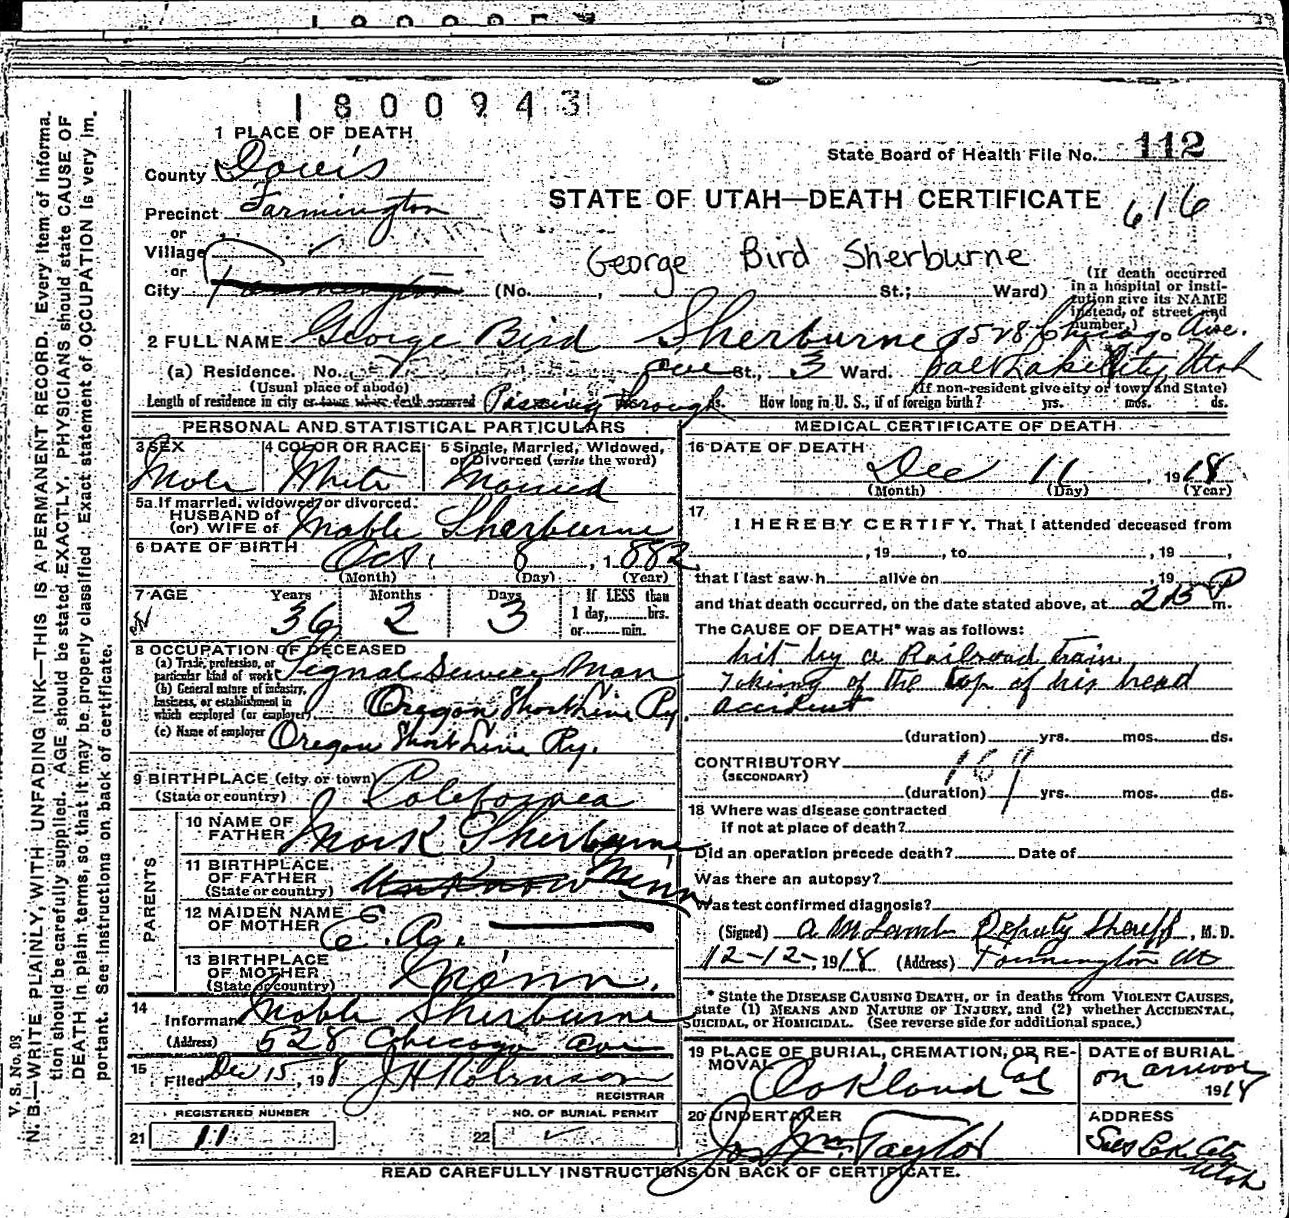 1800943
1 PLACE OF DEATH
County Davis
State Board of Health File No. 112
Precinct Farmington
STATE OF UTAH—DEATH CERTIFICATE 616
or
Village
or
George Bird Sherburne
City Farmington (No. , St.; Ward)
(If death occurred in a hospital or institution give its NAME instead of street and number.)
2 FULL NAME George Bird Sherburne 528 Chicago Ave.
(a) Residence. No. Ave St., 3 Ward. Salt Lake City, Utah
(Usual place of abode) (If non-resident give city or town and State)
Length of residence in city or town where death occurred Passing through ds. How long in U. S., if of foreign birth? yrs. mos. ds.
PERSONAL AND STATISTICAL PARTICULARS
3 SEX Male
4 COLOR OR RACE White
5 Single, Married, Widowed, or Divorced (write the word) Married
5a If married, widowed or divorced.
HUSBAND of
(or) WIFE of Mable Sherburne
6 DATE OF BIRTH Oct. 8, 1882
(Month) (Day) (Year)
7 AGE Years 36 Months 2 Days 3 If LESS than 1 day, hrs. or min.
8 OCCUPATION OF DECEASED
(a) Trade, profession, or particular kind of work Signal Service Man
(b) General nature of industry, business, or establishment in which employed (or employer) Oregon Short Line Ry.
(c) Name of employer Oregon Short Line Ry.
9 BIRTHPLACE (city or town)
(State or country) California
PARENTS
10 NAME OF FATHER Mark Sherburne
11 BIRTHPLACE OF FATHER (State or country) Unknow Minn
12 MAIDEN NAME OF MOTHER E. A.
13 BIRTHPLACE OF MOTHER (State or country) Minn.
14 Informant Mable Sherburne
(Address) 528 Chicago Ave
15 Filed Dec 15, 1918 J H Robinson
REGISTRAR
REGISTERED NUMBER NO. OF BURIAL PERMIT
21 11 22
MEDICAL CERTIFICATE OF DEATH
16 DATE OF DEATH Dec 11 1918
(Month) (Day) (Year)
17 I HEREBY CERTIFY, That I attended deceased from
, 19 , to , 19 ,
that I last saw h alive on , 19
and that death occurred, on the date stated above, at P m.
The CAUSE OF DEATH* was as follows:
hit by a Railroad train
Taking of the top of his head
accident
(duration) yrs. mos. ds.
CONTRIBUTORY
(SECONDARY)
(duration) yrs. mos. ds.
18 Where was disease contracted
if not at place of death?
Did an operation precede death? Date of
Was there an autopsy?
Was test confirmed diagnosis?
(Signed) A M Lamb Deputy Sheriff, M. D.
12-12-, 1918 (Address) Farmington Ut
* State the DISEASE CAUSING DEATH, or in deaths from VIOLENT CAUSES,
state (1) MEANS AND NATURE OF INJURY, and (2) whether ACCIDENTAL,
SUICIDAL, or HOMICIDAL. (See reverse side for additional space.)
19 PLACE OF BURIAL, CREMATION, OR REMOVAL Oakland Cal
DATE of BURIAL on arrival 1918
20 UNDERTAKER Jos Wm Taylor
ADDRESS Salt Lake City Utah
READ CAREFULLY INSTRUCTIONS ON BACK OF CERTIFICATE.
V. S. No. 98
N. B.—WRITE PLAINLY, WITH UNFADING INK—THIS IS A PERMANENT RECORD. Every item of informa-
tion should be carefully supplied. AGE should be stated EXACTLY. PHYSICIANS should state CAUSE OF
DEATH, in plain terms, so that it may be properly classified. Exact statement of OCCUPATION is very im-
portant. See instructions on back of certificate.